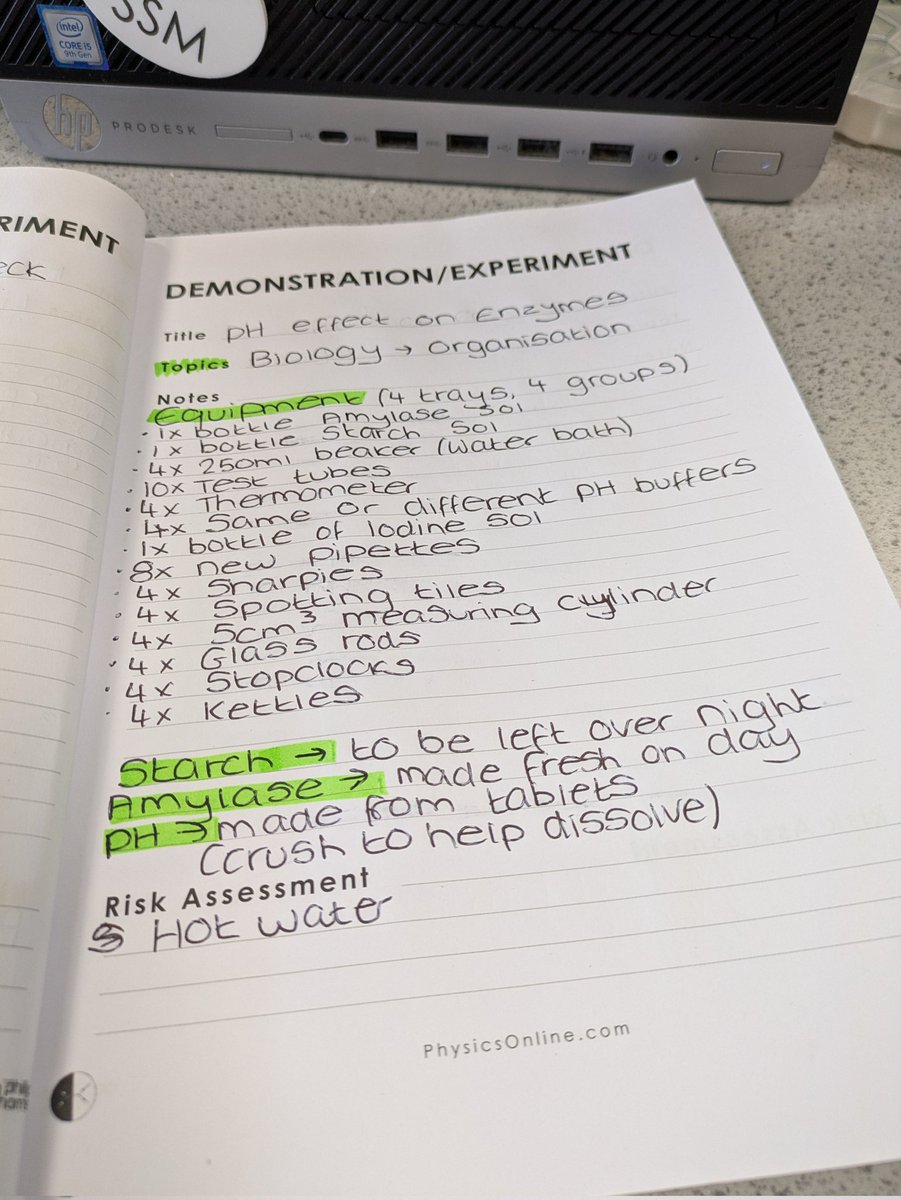 SSM
intel
CORE i5
9th Gen
hp
PRODESK
RIMENT
eck
DEMONSTRATION/EXPERIMENT
Title pH effect on Enzymes
Topics Biology → organisation
Notes
Equipment (4 trays, 4 groups)
· 1x bottle Amylase Sol
· 1x bottle Starch Sol
- 4x 250ml beaker (water bath)
· 10x Test tubes
· 4x Thermometer
· 4x Same or different pH buffers
· 1x bottle of Iodine Sol
· 8x new pipettes
· 4x Sharpies
· 4x Spotting tiles
· 4x 5cm³ measuring cylinder
· 4x Glass rods
· 4x Stopclocks
· 4x Kettles
Starch → to be left over night
Amylase → made fresh on day
pH → made from tablets
(crush to help dissolve)
Risk Assessment
Hot water
PhysicsOnline.com